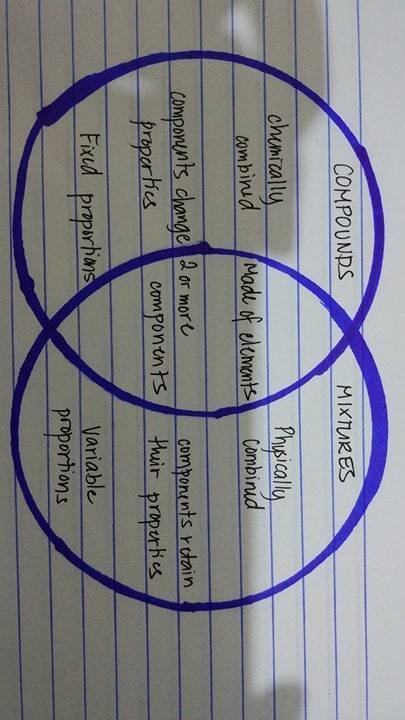 COMPOUNDS
chemically
combined
components change
properties
Fixed proportions
Made of elements
2 or more
components
MIXTURES
Physically
Combined
components retain
their properties
Variable
proportions